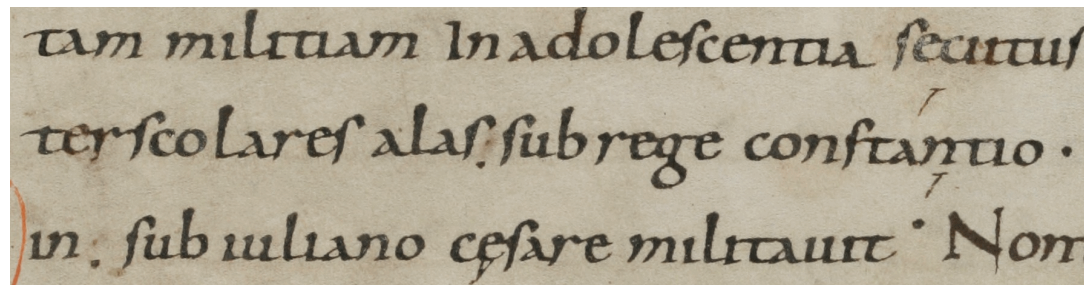 tam militiam In adolescentia secutus
ter scolares alas. sub rege constantio ·
in. sub iuliano cęsare militauit · Nom